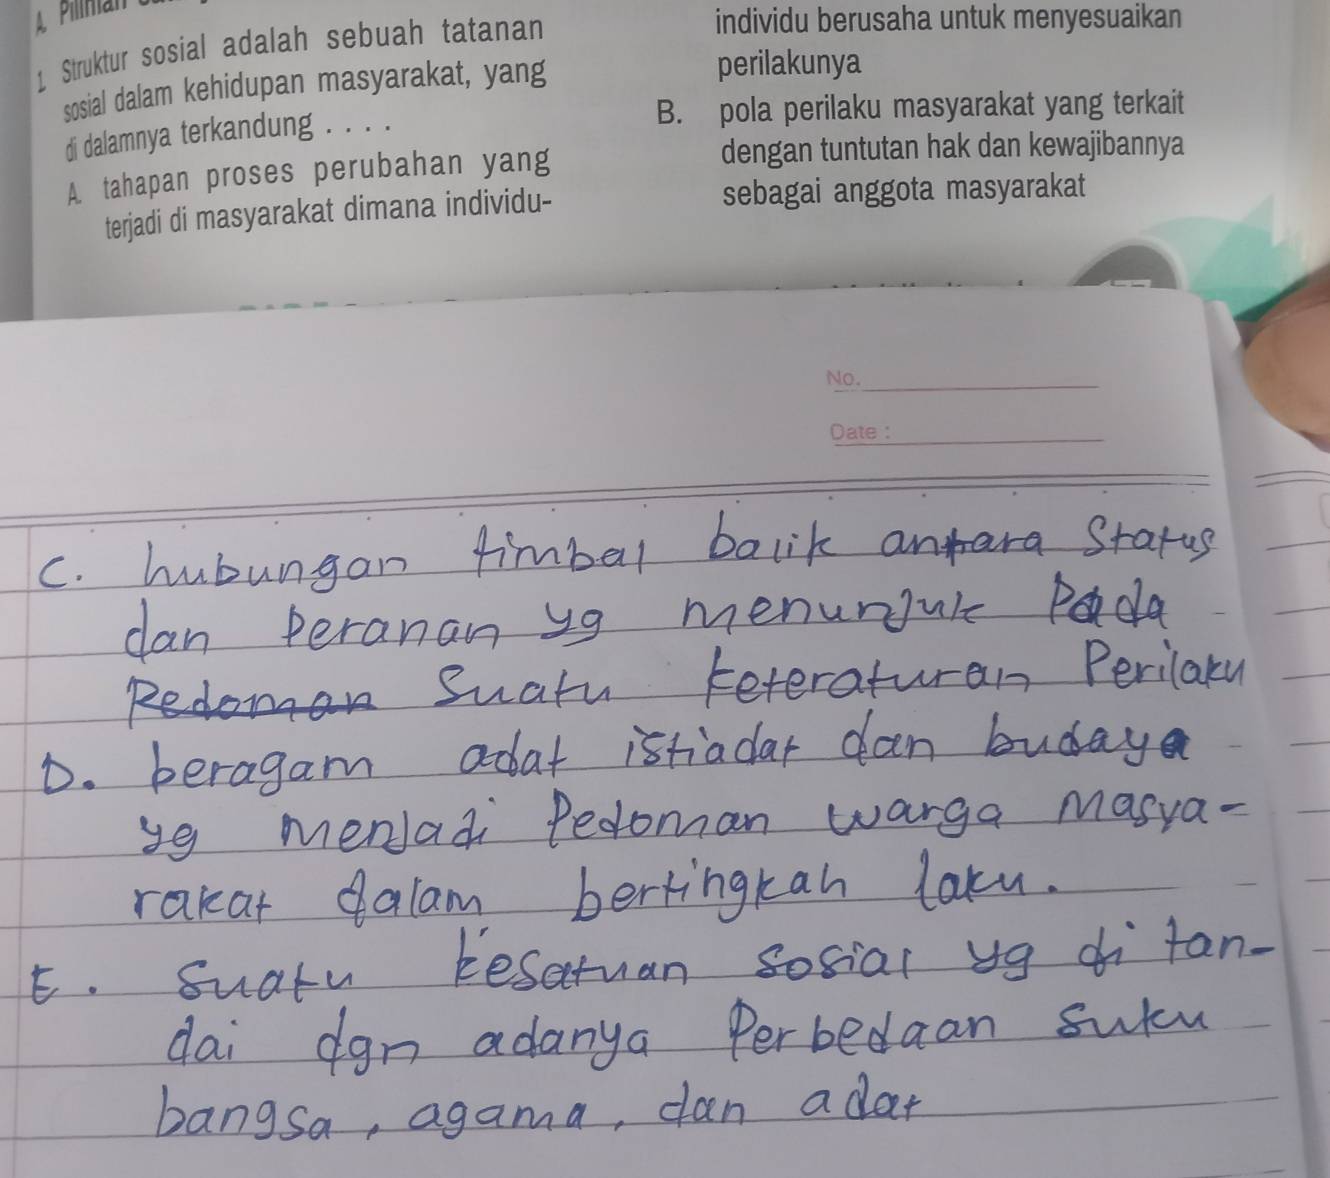 A. Pilihan
1. Struktur sosial adalah sebuah tatanan
sosial dalam kehidupan masyarakat, yang
di dalamnya terkandung . . . .
A. tahapan proses perubahan yang
terjadi di masyarakat dimana individu-
individu berusaha untuk menyesuaikan
perilakunya
B. pola perilaku masyarakat yang terkait
dengan tuntutan hak dan kewajibannya
sebagai anggota masyarakat
No.
Date :
C. hubungan timbal balik antara Status
dan Peranan yg menunjuk Pada
Pedoman Suatu keteraturan Perilaku
D. beragam adat istiadat dan budaya
yg menjadi Pedoman warga Masya-
rakat dalam bertingkah laku.
E. suatu kesatuan sosial yg di tan-
dai dgn adanya Perbedaan suku
bangsa, agama, dan adat